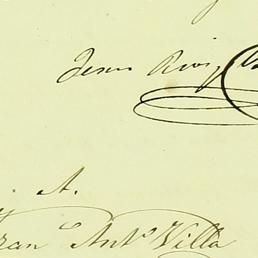 Jesus Ruiz
A.
Fran.co Ant.o Villa